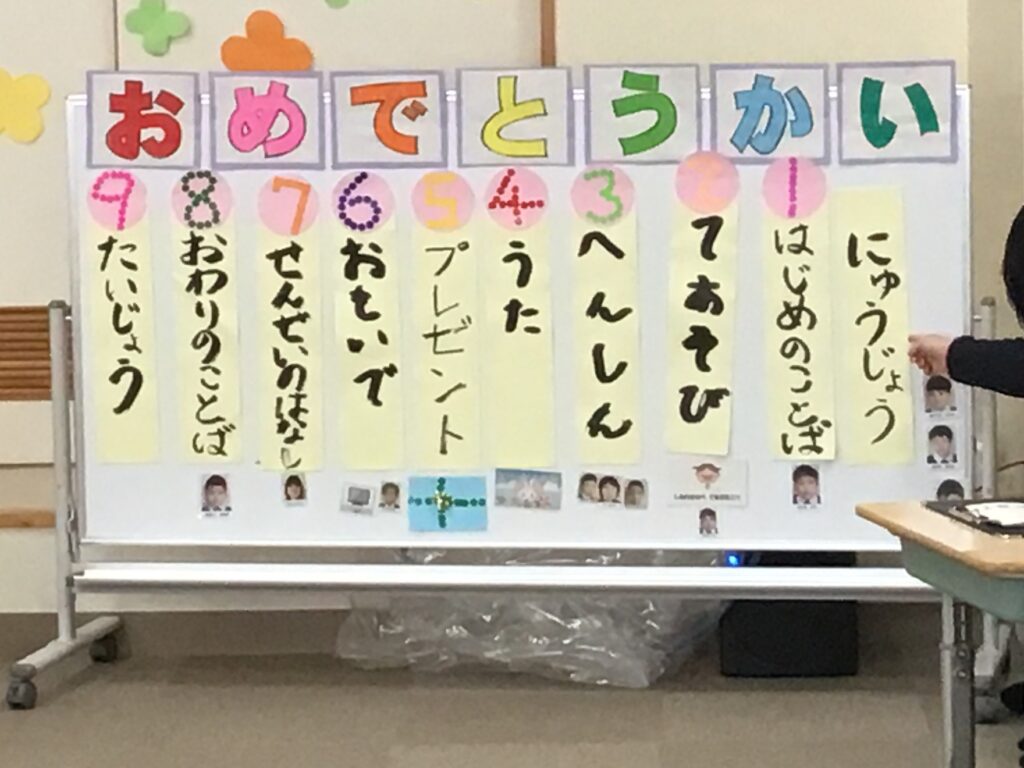 おめでとうかい
にゅうじょう
1
はじめのことば
2
てあそび
3
へんしん
4
うた
5
プレゼント
6
おもいで
7
せんせいのはなし
8
おわりのことば
9
たいじょう